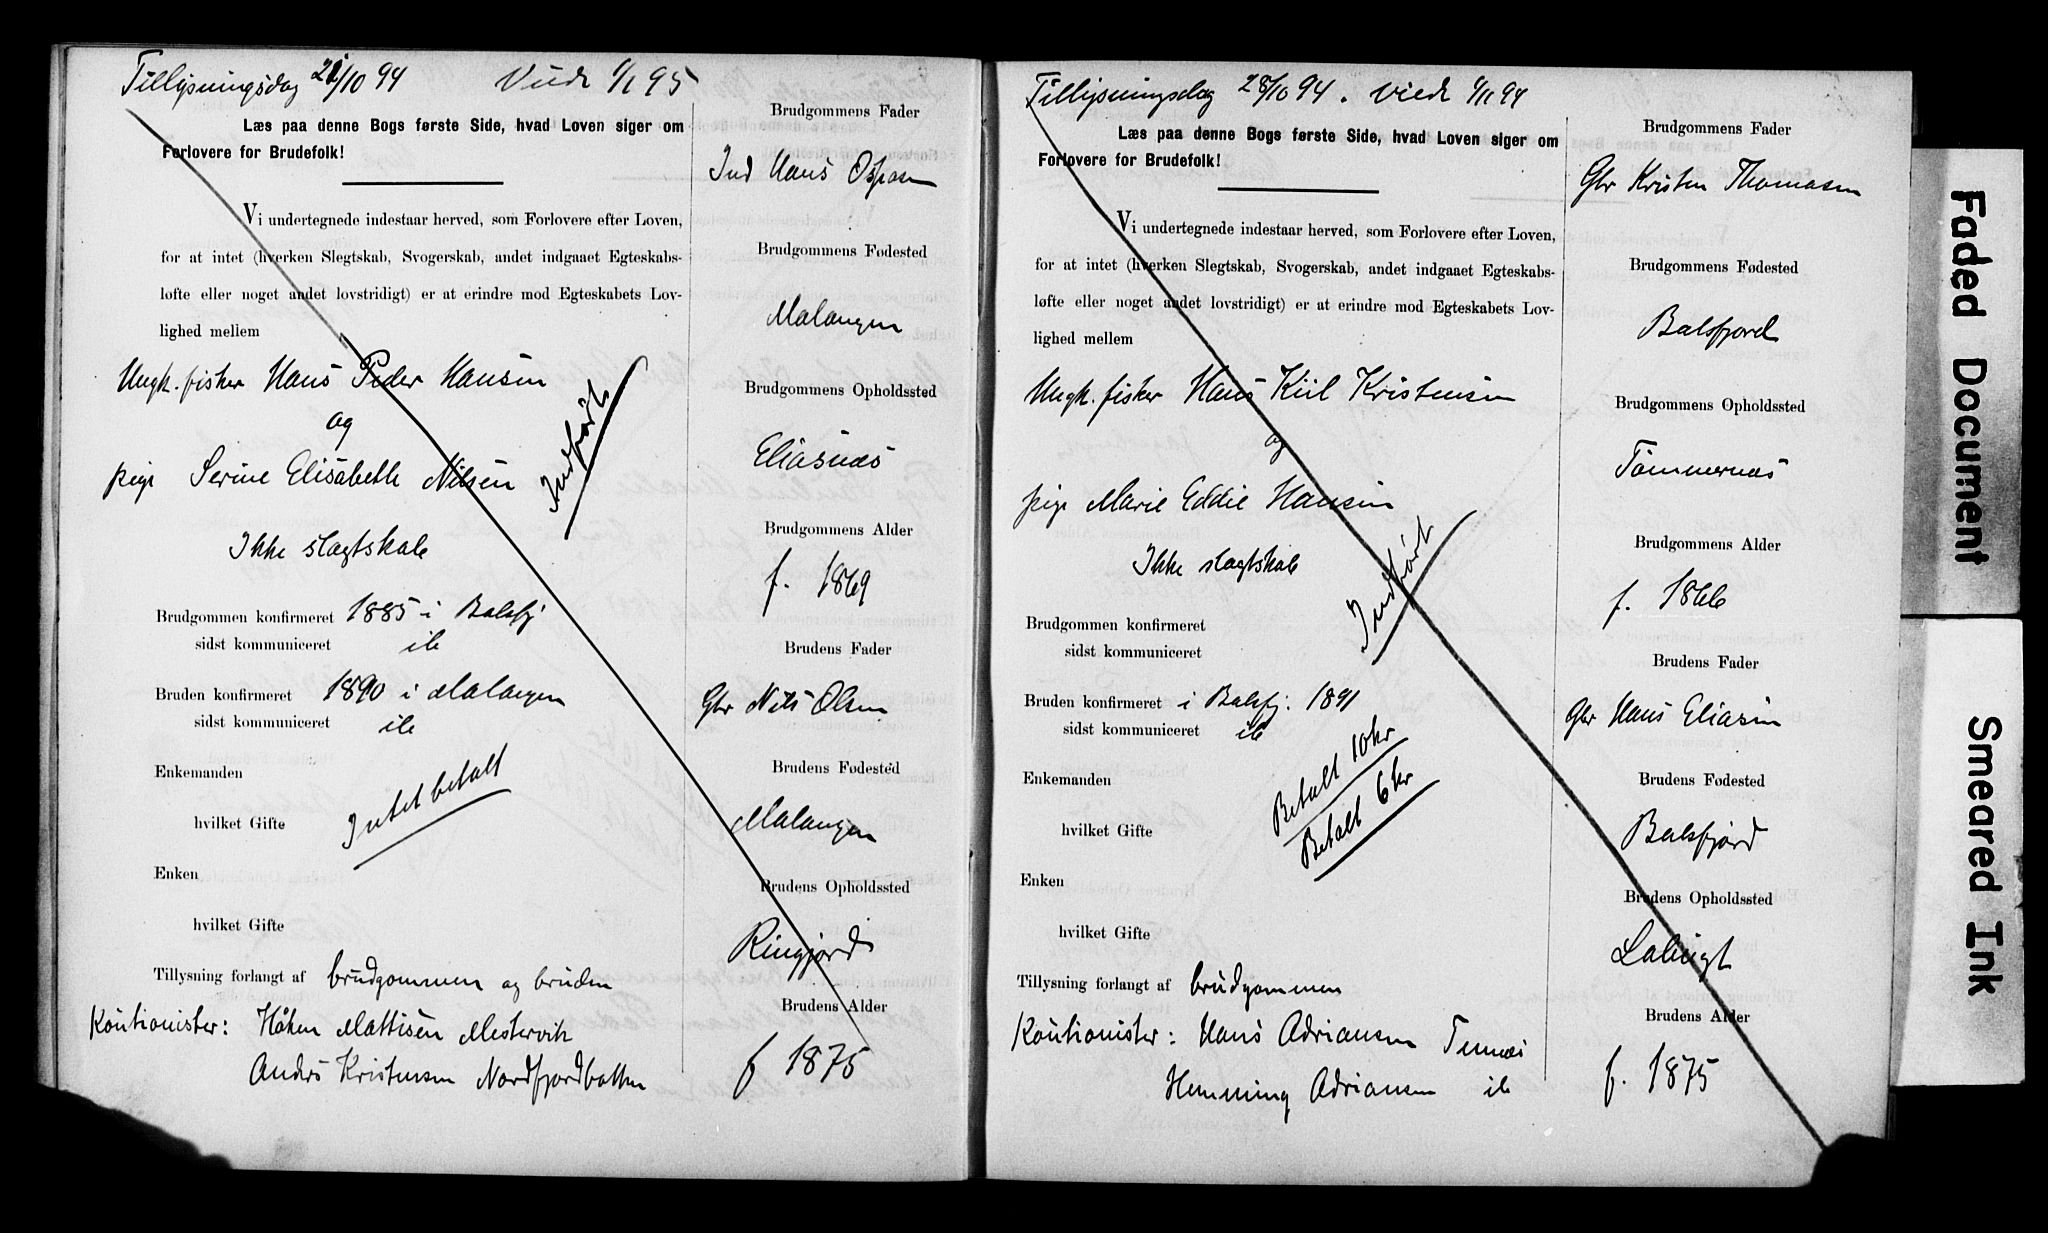 Tillysningsdag 21/10 94 Viede 6/1 95
Læs paa denne Bogs første Side, hvad Loven siger om
Forlovere for Brudefolk!
Vi undertegnede indestaar herved, som Forlovere efter Loven,
for at intet (hverken Slegtskab, Svogerskab, andet indgaaet Egteskabs-
løfte eller noget andet lovstridigt) er at erindre mod Egteskabets Lov-
lighed mellem
Ungk. fisker Hans Peder Hansen
og
pige Serine Elisabeth Nilsen
Indført
Ikke slægtskab
Brudgommen konfirmeret 1885 i Balsfj
sidst kommuniceret ib
Bruden konfirmeret 1890 i Malangen
sidst kommuniceret ib
Enkemanden
Intet betalt
hvilket Gifte
Enken
hvilket Gifte
Tillysning forlangt af brudgommen og bruden
Kautionister: Håken Mattisen Mestervik
Anders Kristensen Nordfjordbotten
Brudgommens Fader
Ind Hans
Brudgommens Fødested
Malangen
Brudgommens Opholdssted
Eliasnæs
Brudgommens Alder
f. 1869
Brudens Fader
Gbr Nils Olsen
Brudens Fødested
Malangen
Brudens Opholdssted
Ringfjord
Brudens Alder
f 1875
Tillysningsdag 28/10 94. Viede 6/11 94
Læs paa denne Bogs første Side, hvad Loven siger om
Forlovere for Brudefolk!
Vi undertegnede indestaar herved, som Forlovere efter Loven,
for at intet (hverken Slegtskab, Svogerskab, andet indgaaet Egteskabs-
løfte eller noget andet lovstridigt) er at erindre mod Egteskabets Lov-
lighed mellem
Ungk. fisker Hans Kiil Kristensen
og
pige Marie Eddie Hansen
Ikke slægtskab
Indført
Brudgommen konfirmeret
sidst kommuniceret
Bruden konfirmeret i Balsfj. 1891
sidst kommuniceret ib
Enkemanden
Betalt 10 kr
hvilket Gifte
Betalt 6 kr
Enken
hvilket Gifte
Tillysning forlangt af brudgommen
Kautionister: Hans Adriansen Tennes
Hemming Adriansen ib
Brudgommens Fader
Gbr Kristen Thomasen
Brudgommens Fødested
Balsfjord
Brudgommens Opholdssted
Tømmernæs
Brudgommens Alder
f. 1866
Brudens Fader
Gbr Hans Eliasen
Brudens Fødested
Balsfjord
Brudens Opholdssted
Brudens Alder
f. 1875
Faded Document
Smeared Ink